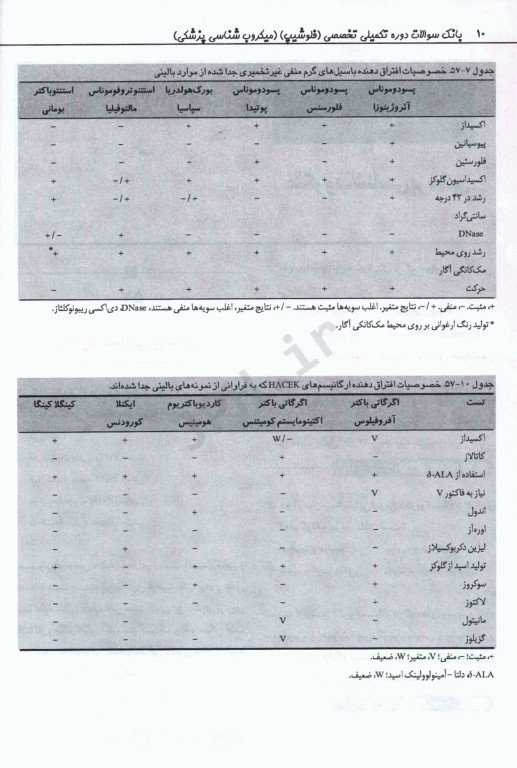 ۱۰ بانک سوالات دوره تکمیلی تخصصی (فلوشیپ) (میکروب شناسی پزشکی)
جدول ۷-۵۷. خصوصیات افتراق دهنده باسیل‌های گرم منفی غیرتخمیری جدا شده از موارد بالینی
پسودوموناس پسودوموناس پسودوموناس بورک‌هولدریا استنوتروفوموناس اسینتوباکتر
آئروژینوزا فلورسنس پوتیدا سپاسیا مالتوفیلیا بومانی
اکسیداز + + + + – –
پیوسیانین + – – – – –
فلورسئین + + + – – –
اکسیداسیون گلوکز + + + + +/– +
رشد در ۴۲ درجه + – – +/– +/– +
سانتی‌گراد
DNase – – – – + –/+
رشد روی محیط + + + + + +*
مک‌کانگی آگار
حرکت + + + + + –
+، مثبت. –، منفی. + / –، نتایج متغیر، اغلب سویه‌ها مثبت هستند. – / +، نتایج متغیر، اغلب سویه‌ها منفی هستند، DNase، دی‌اکسی ریبونوکلئاز.
* تولید رنگ ارغوانی بر روی محیط مک‌کانکی آگار.
جدول ۱۰-۵۷. خصوصیات افتراق دهنده ارگانیسم‌های HACEK که به فراوانی از نمونه‌های بالینی جدا شده‌اند.
تست اگرگاتی باکتر اگرگاتی باکتر کاردیوباکتریوم ایکنلا کینگلا کینگا
آفروفیلوس اکتینومایستم کومیتنس هومینیس کورودنس
اکسیداز V W/– + + +
کاتالاز – + – – –
استفاده از δ-ALA + + + + +
نیاز به فاکتور V V – – – –
اندول – – + – –
اوره‌آز – – – – –
لیزین دکربوکسیلاز – – – + –
تولید اسید از گلوکز + + + – +
سوکروز + – + – –
لاکتوز + – – – –
مانیتول – V + – –
گزیلوز – V – – –
+، مثبت؛ –، منفی؛ V، متغیر؛ W، ضعیف.
δ-ALA، دلتا – آمینولوولینک اسید؛ W، ضعیف.